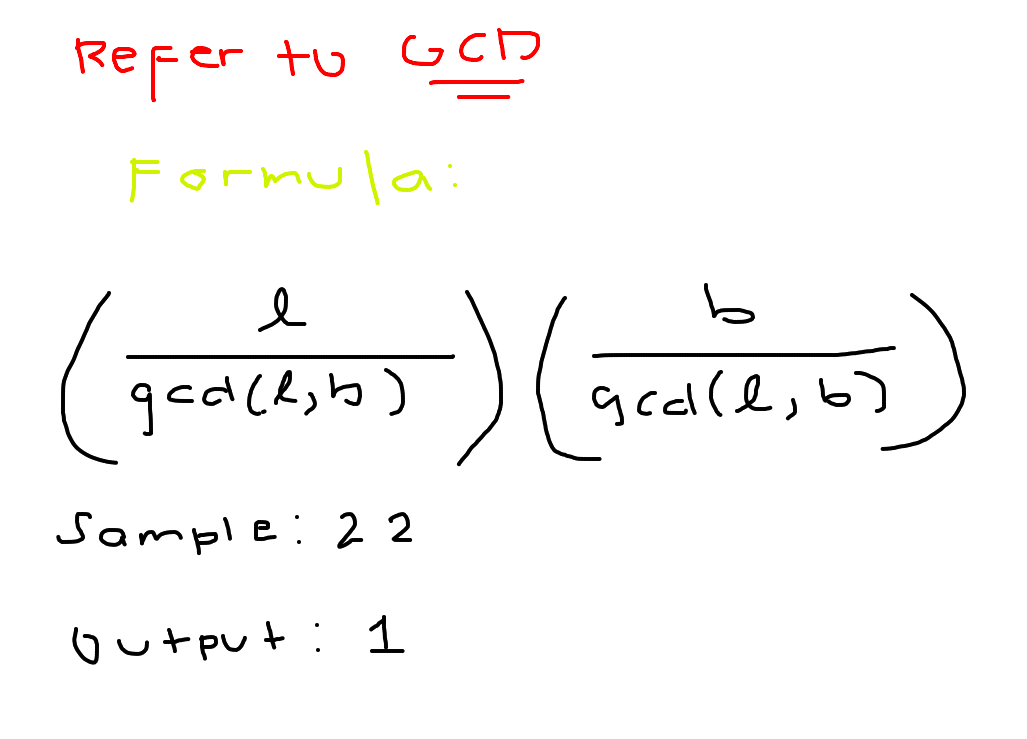 Refer to GCD
Formula:
(l / gcd(l,b)) (b / gcd(l,b))
Sample: 2 2
Output: 1